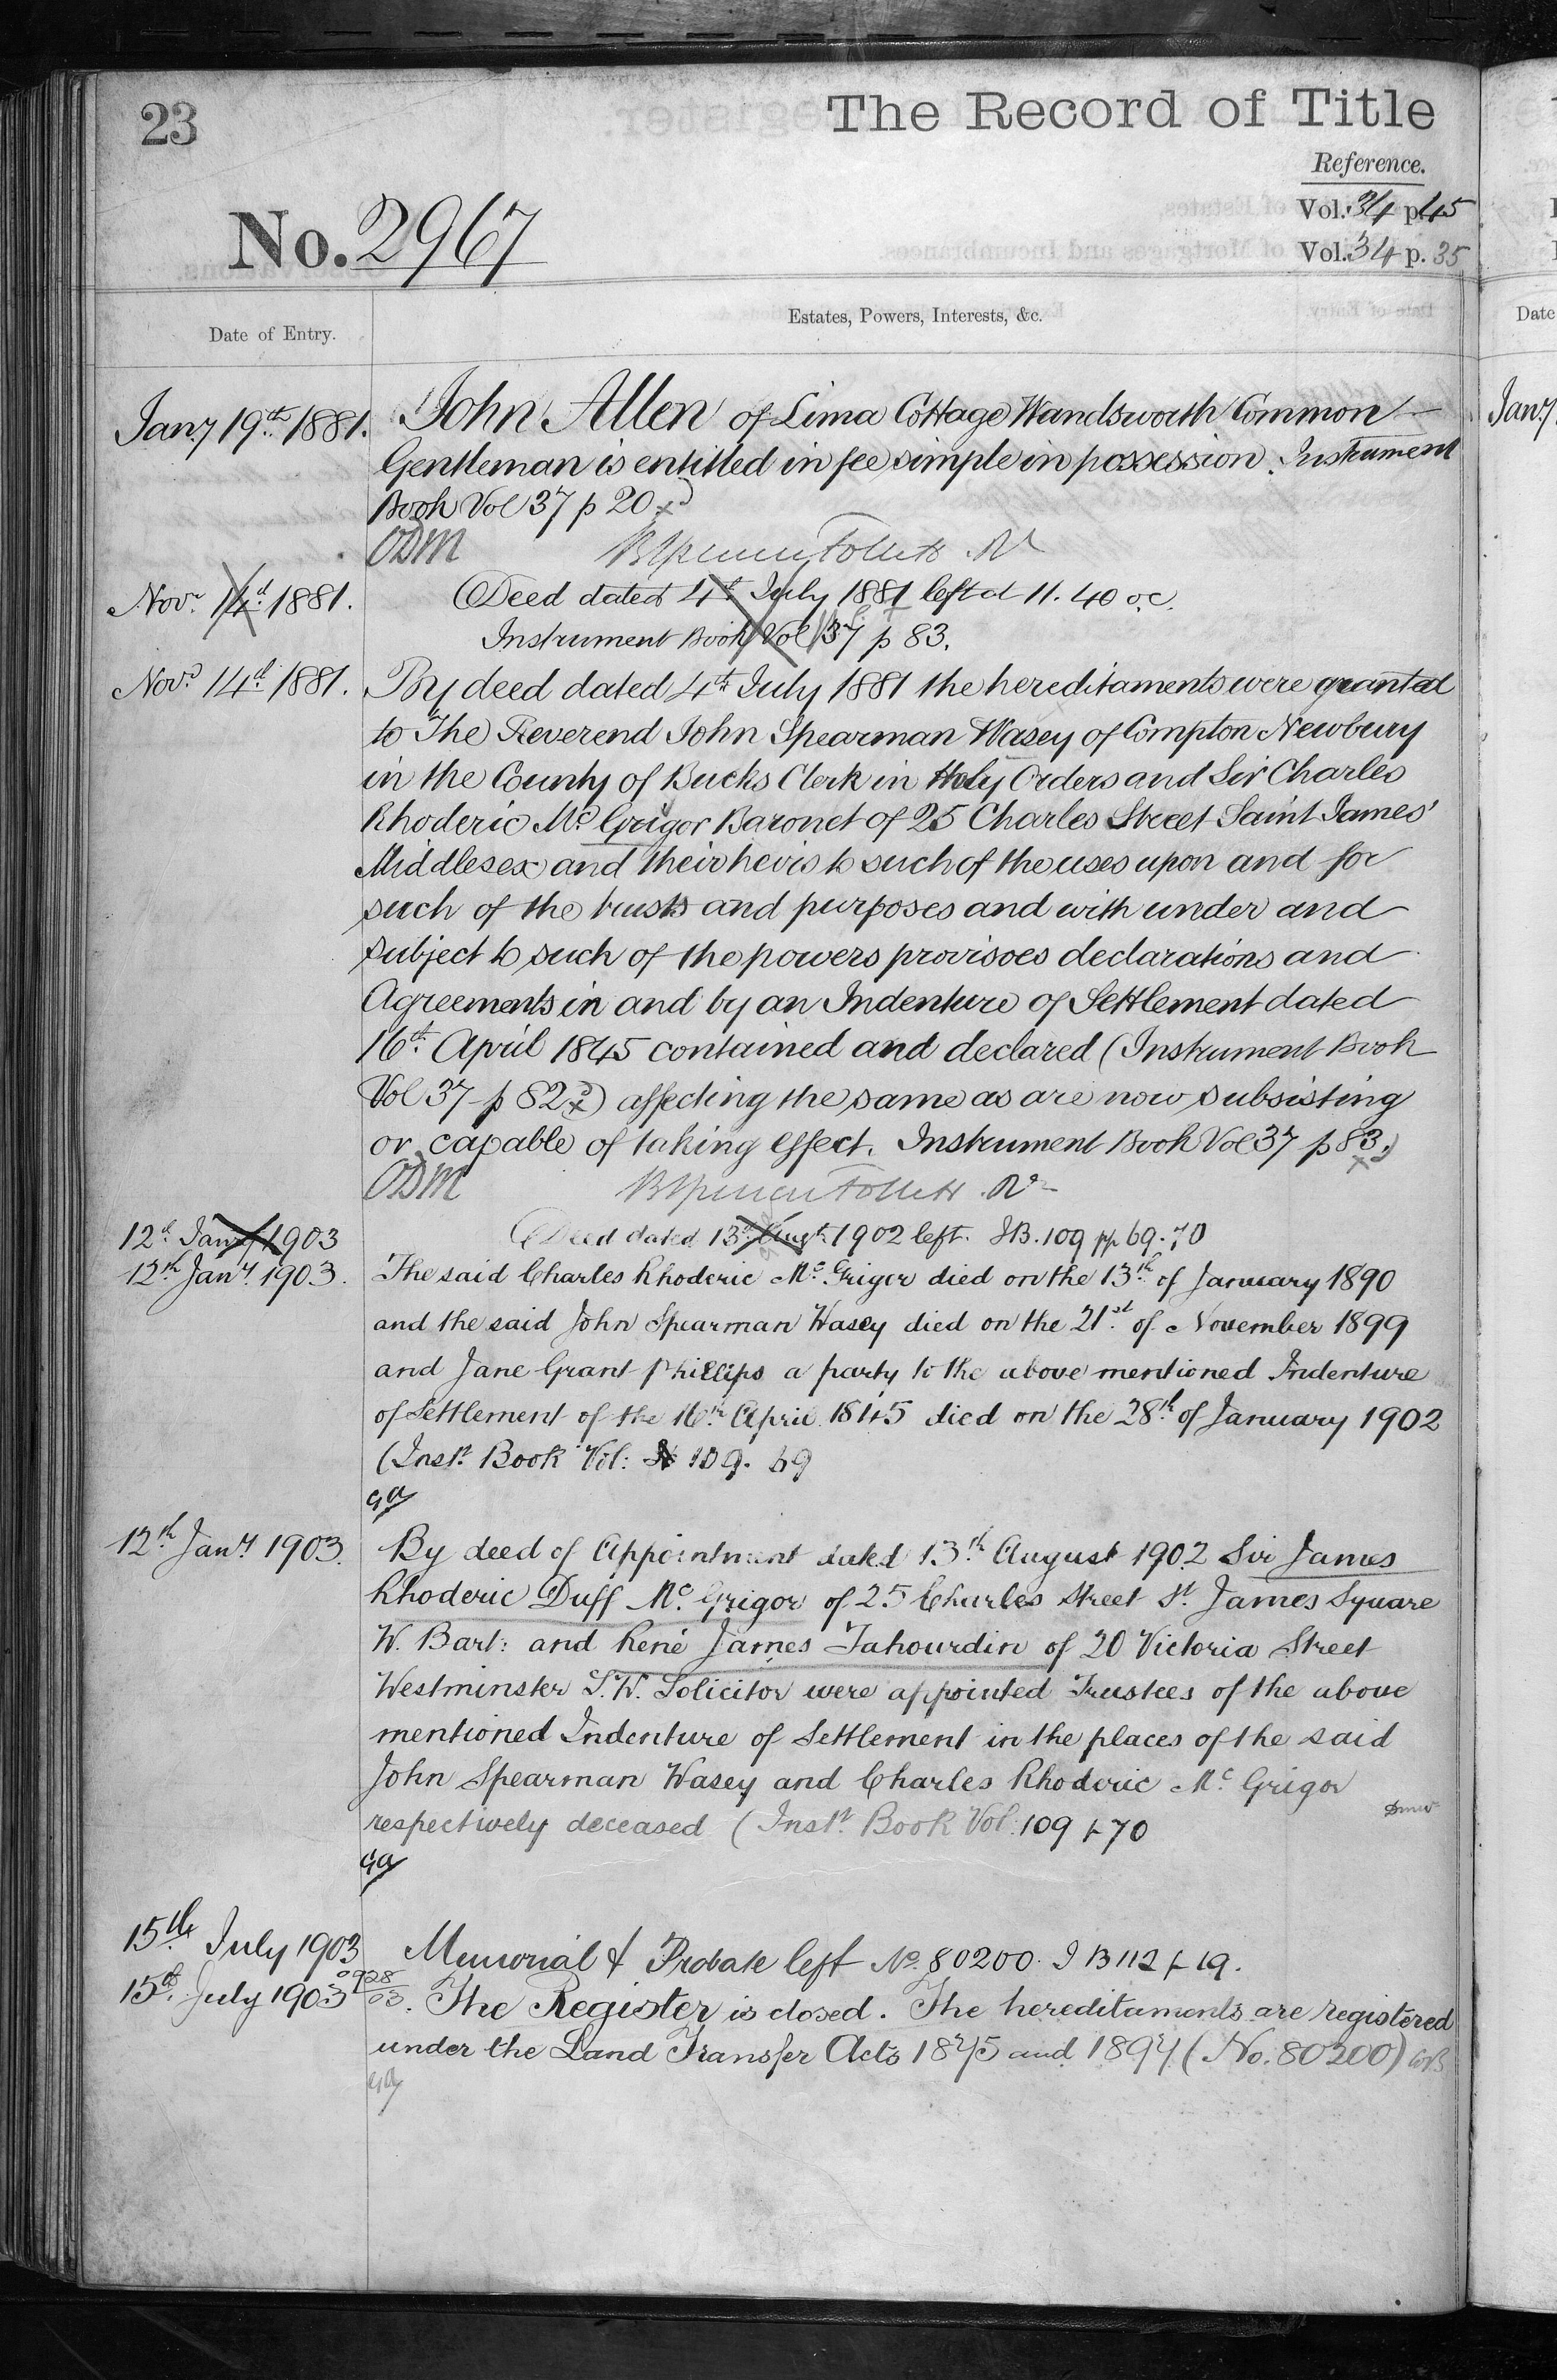 23
The Record of Title
Reference.
Vol. 34 p. 45
No. 2967
Vol. 34 p. 35
Date of Entry.
Estates, Powers, Interests, &c.
Date
Jany 19th 1881. John Allen of Lima Cottage Wandsworth Common
Jany
Gentleman is entitled in fee simple in possession. Instrument
Book Vol 37 p 20
ODM
Novr 14th 1881. Deed dated 4th July 1881 left at 11.40 oc.
Instrument Book Vol 37 p 83.
Novr 14th 1881. By deed dated 4th July 1881 the hereditaments were granted
to The Reverend John Spearman Wasey of Compton Newbury
in the County of Bucks Clerk in Holy Orders and Sir Charles
Rhoderic Mc Grigor Baronet of 25 Charles Street Saint James'
Middlesex and their heirs to such of the uses upon and for
such of the trusts and purposes and with under and
subject to such of the powers provisoes declarations and
Agreements in and by an Indenture of Settlement dated
16th April 1845 contained and declared (Instrument Book
Vol 37 p 82) affecting the same as are now subsisting
or capable of taking effect. Instrument Book Vol 37 p 83.
ODM
12th Jany 1903 Deed dated 13th Augt 1902 left. IB. 109 pp 69.70
12th Jany 1903. The said Charles Rhoderic Mc Grigor died on the 13th of January 1890
and the said John Spearman Wasey died on the 21st of November 1899
and Jane Grant Phillips a party to the above mentioned Indenture
of Settlement of the 16th April 1845 died on the 28th of January 1902
(Inst. Book Vol: 109. 69
12th Jany 1903. By deed of Appointment dated 13th August 1902 Sir James
Rhoderic Duff Mc Grigor of 25 Charles Street St James Square
W. Bart: and René James Tahourdin of 20 Victoria Street
Westminster S.W. Solicitor were appointed Trustees of the above
mentioned Indenture of Settlement in the places of the said
John Spearman Wasey and Charles Rhoderic Mc Grigor
respectively deceased (Inst. Book Vol: 109 p 70
15th July 1903 Memorial & Probate left No. 80200. I B 112 p 19.
15th July 1903 The Register is closed. The hereditaments are registered
under the Land Transfer Acts 1875 and 1897 (No. 80200)